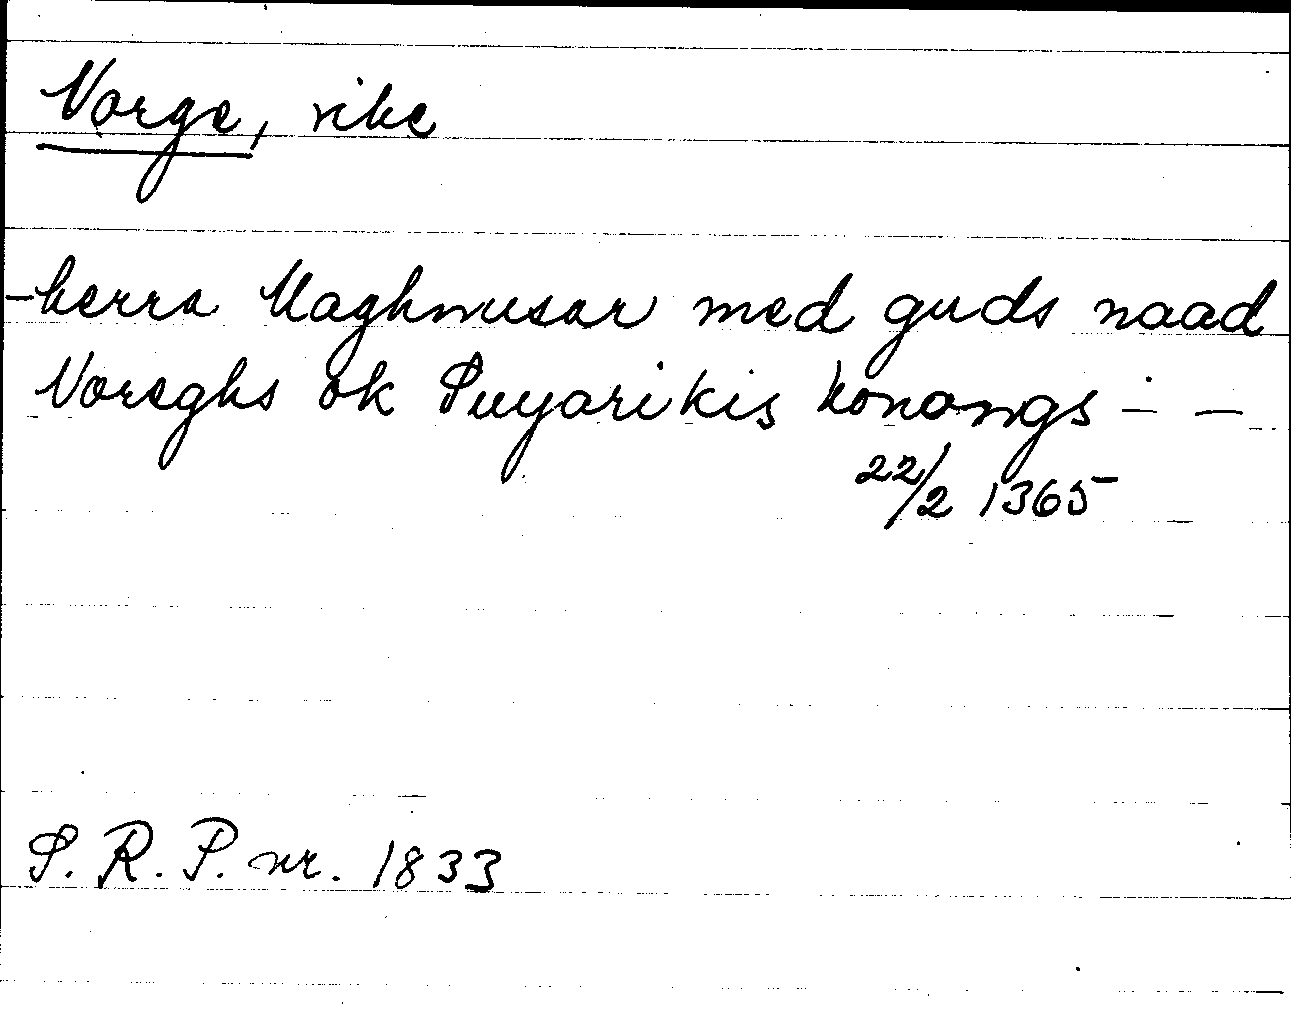 Norge, rike
-herra Maghnusar med guds naad
Noreghs ok Suyarikis konongs - -
22/2 1365
S. R. P. nr. 1833